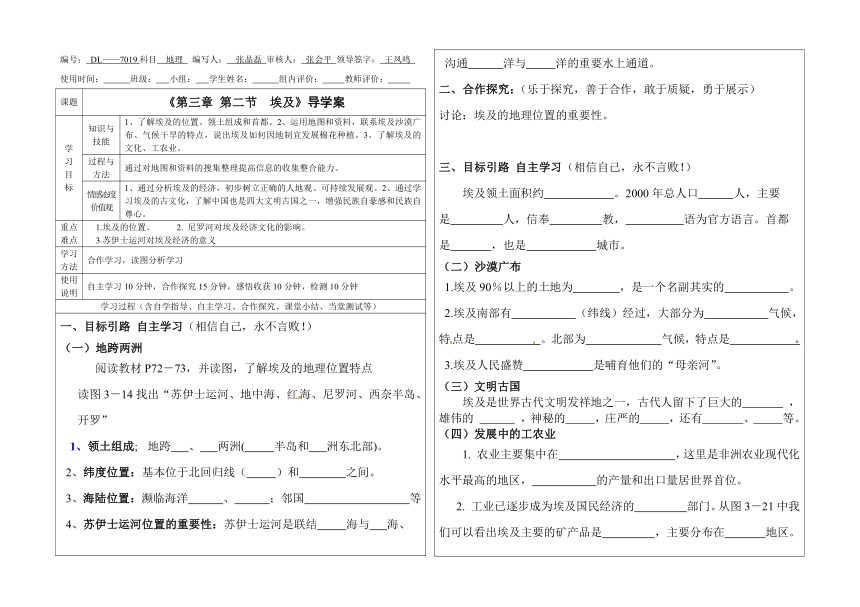 编号: DL——7019 科目 地理 编写人: 张晶磊 审核人: 张会平 领导签字: 王凤鸣
使用时间:______班级:___小组:___学生姓名:______组内评价:____教师评价:_____
课题 《第三章 第二节 埃及》导学案
学习目标
知识与技能
1、了解埃及的位置、领土组成和首都。2、运用地图和资料,联系埃及沙漠广
布、气候干旱的特点,说出埃及如何因地制宜发展棉花种植。3、了解埃及的
文化、工农业。
过程与方法
通过对地图和资料的搜集整理提高信息的收集整合能力。
情感态度价值观
1、通过分析埃及的经济,初步树立正确的人地观、可持续发展观。2、通过学
习埃及的古文化,了解中国也是四大文明古国之一,增强民族自豪感和民族自
尊心。
重点难点
1.埃及的位置。 2. 尼罗河对埃及经济文化的影响。
3.苏伊士运河对埃及经济的意义
学习方法
合作学习,读图分析学习
使用说明
自主学习10分钟,合作探究15分钟,感悟收获10分钟,检测10分钟
学习过程(含自学指导、自主学习、合作探究、课堂小结、当堂测试等)
一、目标引路 自主学习(相信自己,永不言败!)
(一)地跨两洲
阅读教材P72-73,并读图,了解埃及的地理位置特点
读图3-14找出“苏伊士运河、地中海、红海、尼罗河、西奈半岛、
开罗”
1、领土组成; 地跨___、___两洲(_____半岛和___洲东北部)。
2、纬度位置:基本位于北回归线(_____)和________之间。
3、海陆位置:濒临海洋______、______;邻国__________________等
4、苏伊士运河位置的重要性:苏伊士运河是联结_____海与___海、
沟通______洋与_____洋的重要水上通道。
二、合作探究:(乐于探究,善于合作,敢于质疑,勇于展示)
讨论:埃及的地理位置的重要性。
三、目标引路 自主学习(相信自己,永不言败!)
埃及领土面积约____________。2000年总人口______人,主要
是_________人,信奉_________教,__________语为官方语言。首都
是_______,也是____________城市。
(二)沙漠广布
1.埃及90%以上的土地为________,是一个名副其实的___________。
2.埃及南部有___________(纬线)经过,大部分为___________气候,
特点是___________。北部为_____________气候,特点是___________。
3.埃及人民盛赞____________是哺育他们的“母亲河”。
(三)文明古国
埃及是世界古代文明发祥地之一,古代人留下了巨大的_______ ,
雄伟的 ______ ,神秘的_____,庄严的_____,还有_______、_____等。
(四)发展中的工农业
1. 农业主要集中在____________________,这里是非洲农业现代化
水平最高的地区,___________的产量和出口量居世界首位。
2. 工业已逐步成为埃及国民经济的_________部门。从图3-21中我
们可以看出埃及主要的矿产品是_________,主要分布在_______地区。